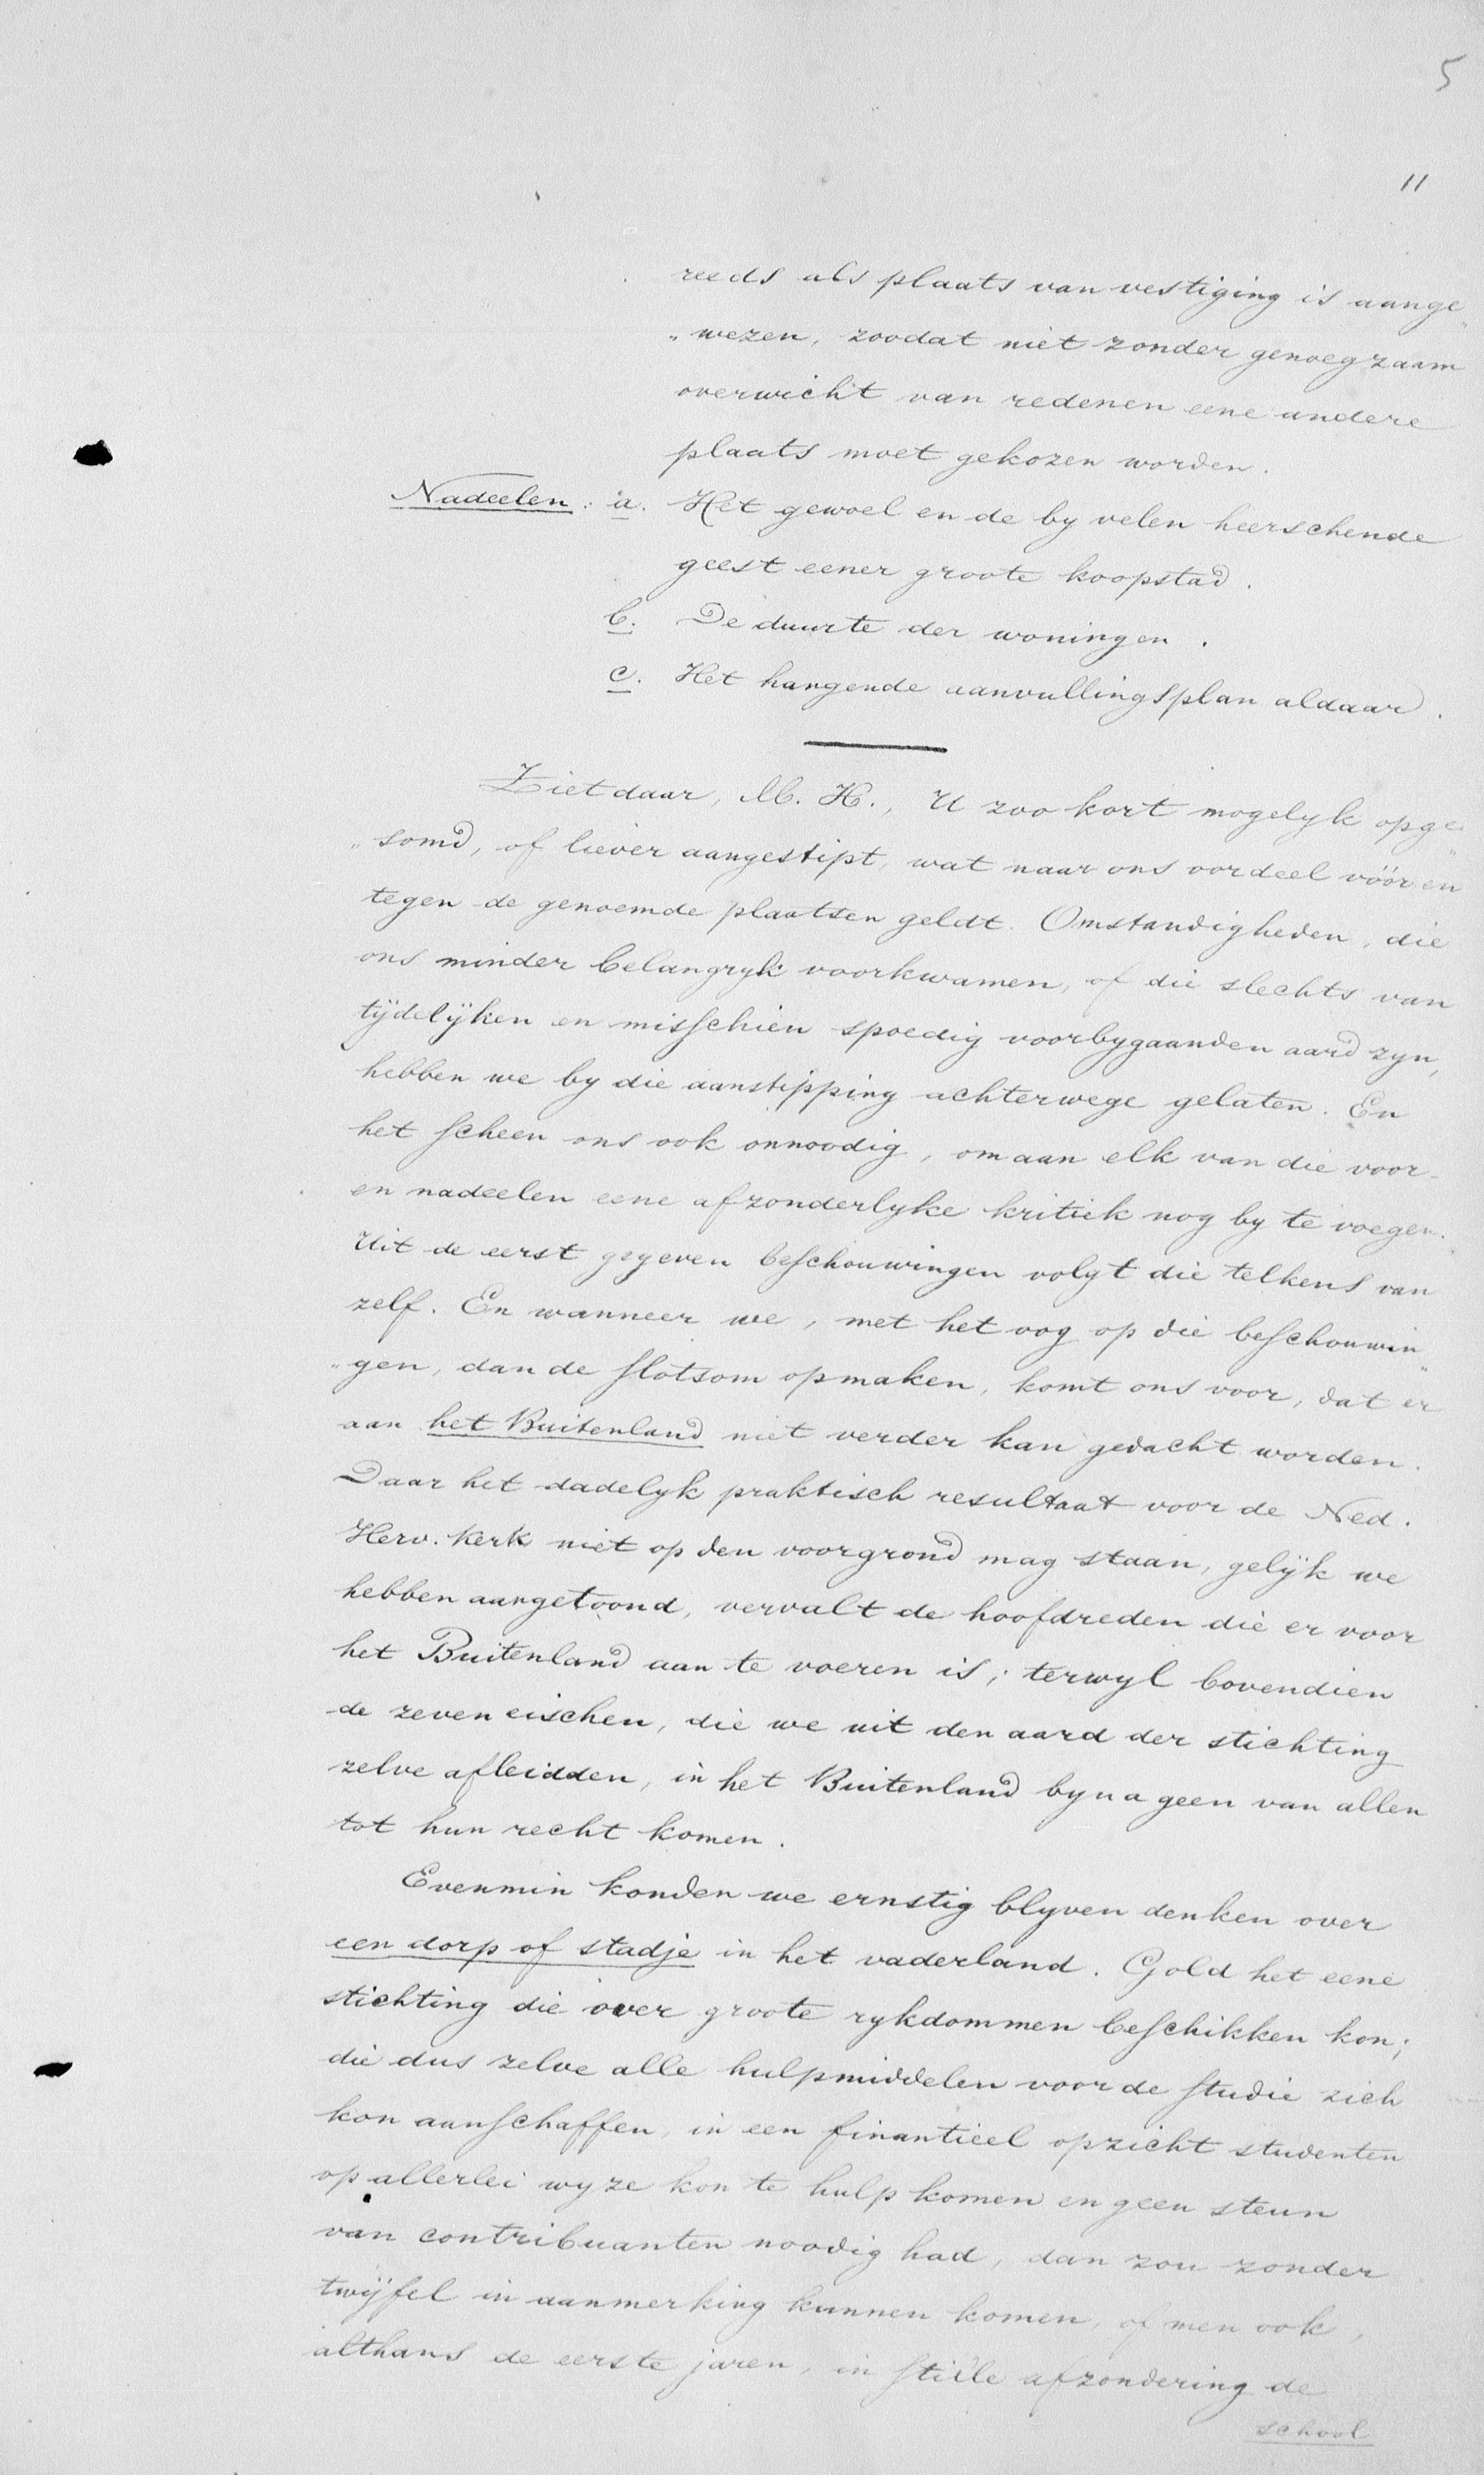 5
11
reeds als plaats van vestiging is aange„
„wezen, zoodat niet zonder genoegzaam
overwicht van redenen eene andere
plaats moet gekozen worden.
Nadeelen: a. Het gewoel en de by velen heerschende
geest eener groote koopstad.
b. De duurte der woningen.
c. Het hangende aanvullingsplan aldaar.
Ziet daar, M. H., U zoo kort mogelyk opge„
„somd, of liever aangestipt, wat naar ons oordeel vóór en
tegen de genoemde plaatsen geldt. Omstandigheden, die
ons minder belangryk voorkwamen, of die slechts van
tijdelijken en misschien spoedig voorbygaanden aard zyn,
hebben we by die aanstipping achterwege gelaten. En
het scheen ons ook onnoodig, om aan elk van die voor-
en nadeelen eene afzonderlyke kritiek nog by te voegen.
Uit de eerst gegeven beschouwingen volgt die telkens van
zelf. En wanneer we, met het oog op die beschouwin„
„gen, dan de slotsom opmaken, komt ons voor, dat er
aan het Buitenland niet verder kan gedacht worden.
Daar het dadelyk praktisch resultaat voor de Ned.
Herv. Kerk niet op den voorgrond mag staan, gelijk we
hebben aangetoond, vervalt de hoofdreden die er voor
het Buitenland aan te voeren is; terwyl bovendien
de zeven eischen, die we uit den aard der stichting
zelve afleidden, in het Buitenland byna geen van allen
tot hun recht komen.
Evenmin konden we ernstig blyven denken over
een dorp of stadje in het vaderland. Gold het eene
stichting die over groote rykdommen beschikken kon;
die dus zelve alle hulpmiddelen voor de studie zich
kon aanschaffen, in een finantieel opzicht studenten
op allerlei wyze kon te hulp komen en geen steun
van contribuanten noodig had, dan zou zonder
twijfel in aanmerking kunnen komen, of men ook,
althans de eerste jaren, in stille afzondering de
school